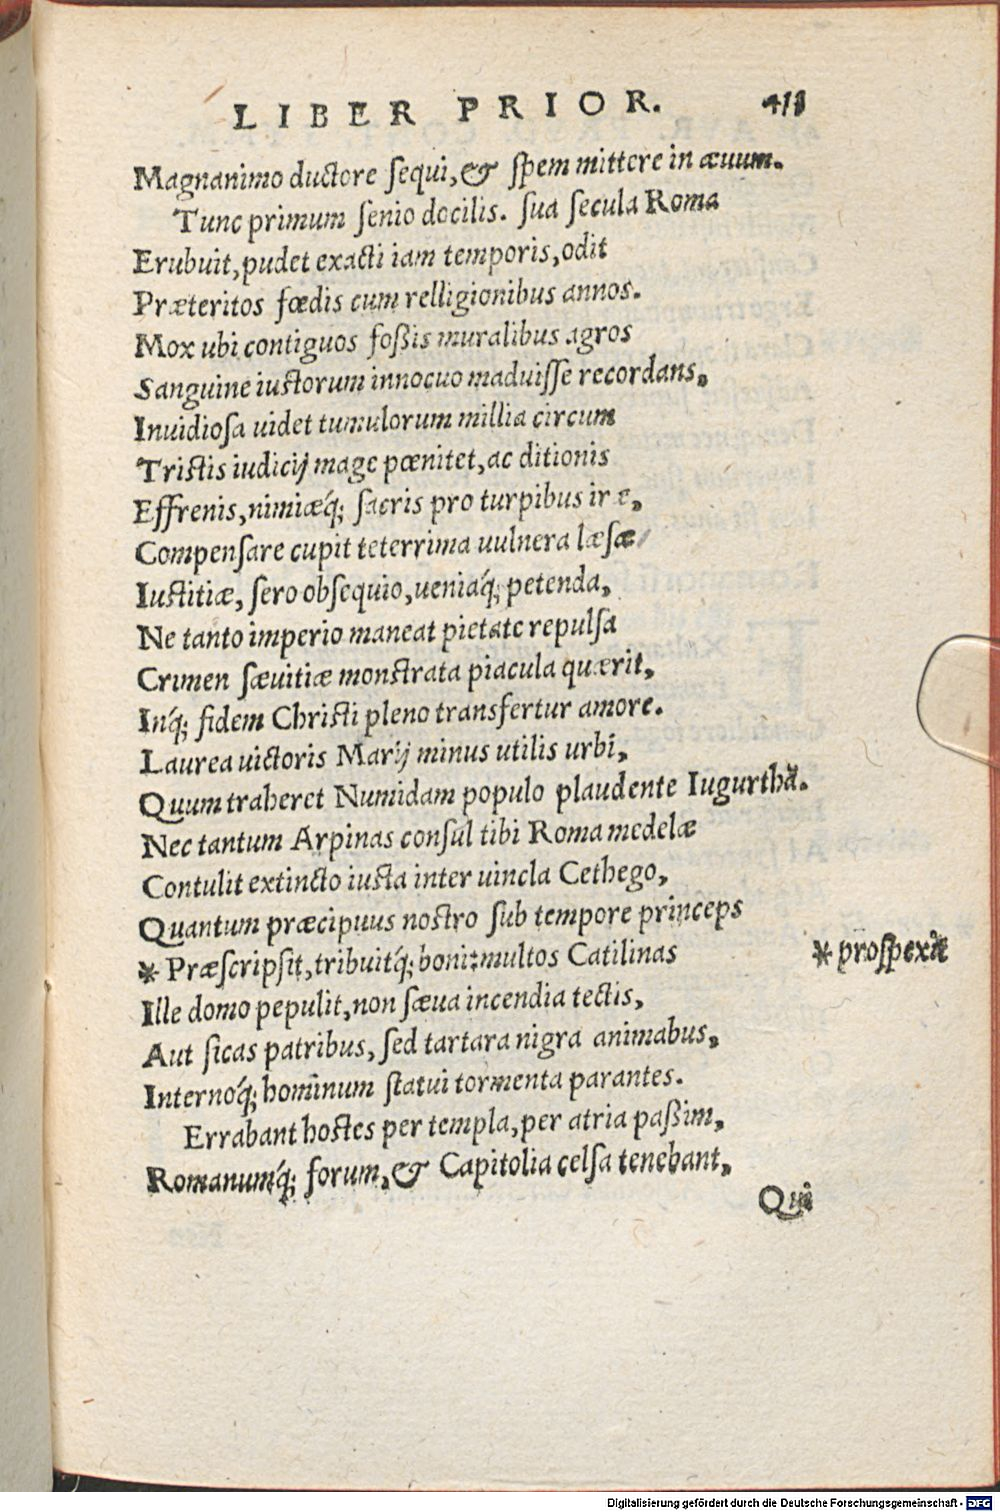 LIBER PRIOR. 413
Magnanimo ductore sequi, & spem mittere in æuum.
Tunc primum senio docilis. sua secula Roma
Erubuit, pudet exacti iam temporis, odit
Præteritos fœdis cum relligionibus annos.
Mox ubi contiguos foßis muralibus agros
Sanguine iustorum innocuo maduisse recordans,
Inuidiosa uidet tumulorum millia circum
Tristis iudicij mage pœnitet, ac ditionis
Effrenis, nimiæq́; sacris pro turpibus iræ,
Compensare cupit teterrima uulnera læsæ
Iustitiæ, sero obsequio, ueniaq́; petenda,
Ne tanto imperio maneat pietate repulsa
Crimen sæuitiæ monstrata piacula quærit,
Inq́; fidem Christi pleno transfertur amore.
Laurea uictoris Marij minus utilis urbi,
Quum traheret Numidam populo plaudente Iugurthã.
Nec tantum Arpinas consul tibi Roma medelæ
Contulit extincto iusta inter uincla Cethego,
Quantum præcipuus nostro sub tempore princeps
* Præscripsit, tribuitq́; boni: multos Catilinas
* prospexit
Ille domo pepulit, non sæua incendia tectis,
Aut sicas patribus, sed tartara nigra animabus,
Internoq́; hominum statui tormenta parantes.
Errabant hostes per templa, per atria paßim,
Romanumq́; forum, & Capitolia celsa tenebant,
Qui
Digitalisierung gefördert durch die Deutsche Forschungsgemeinschaft - DFG